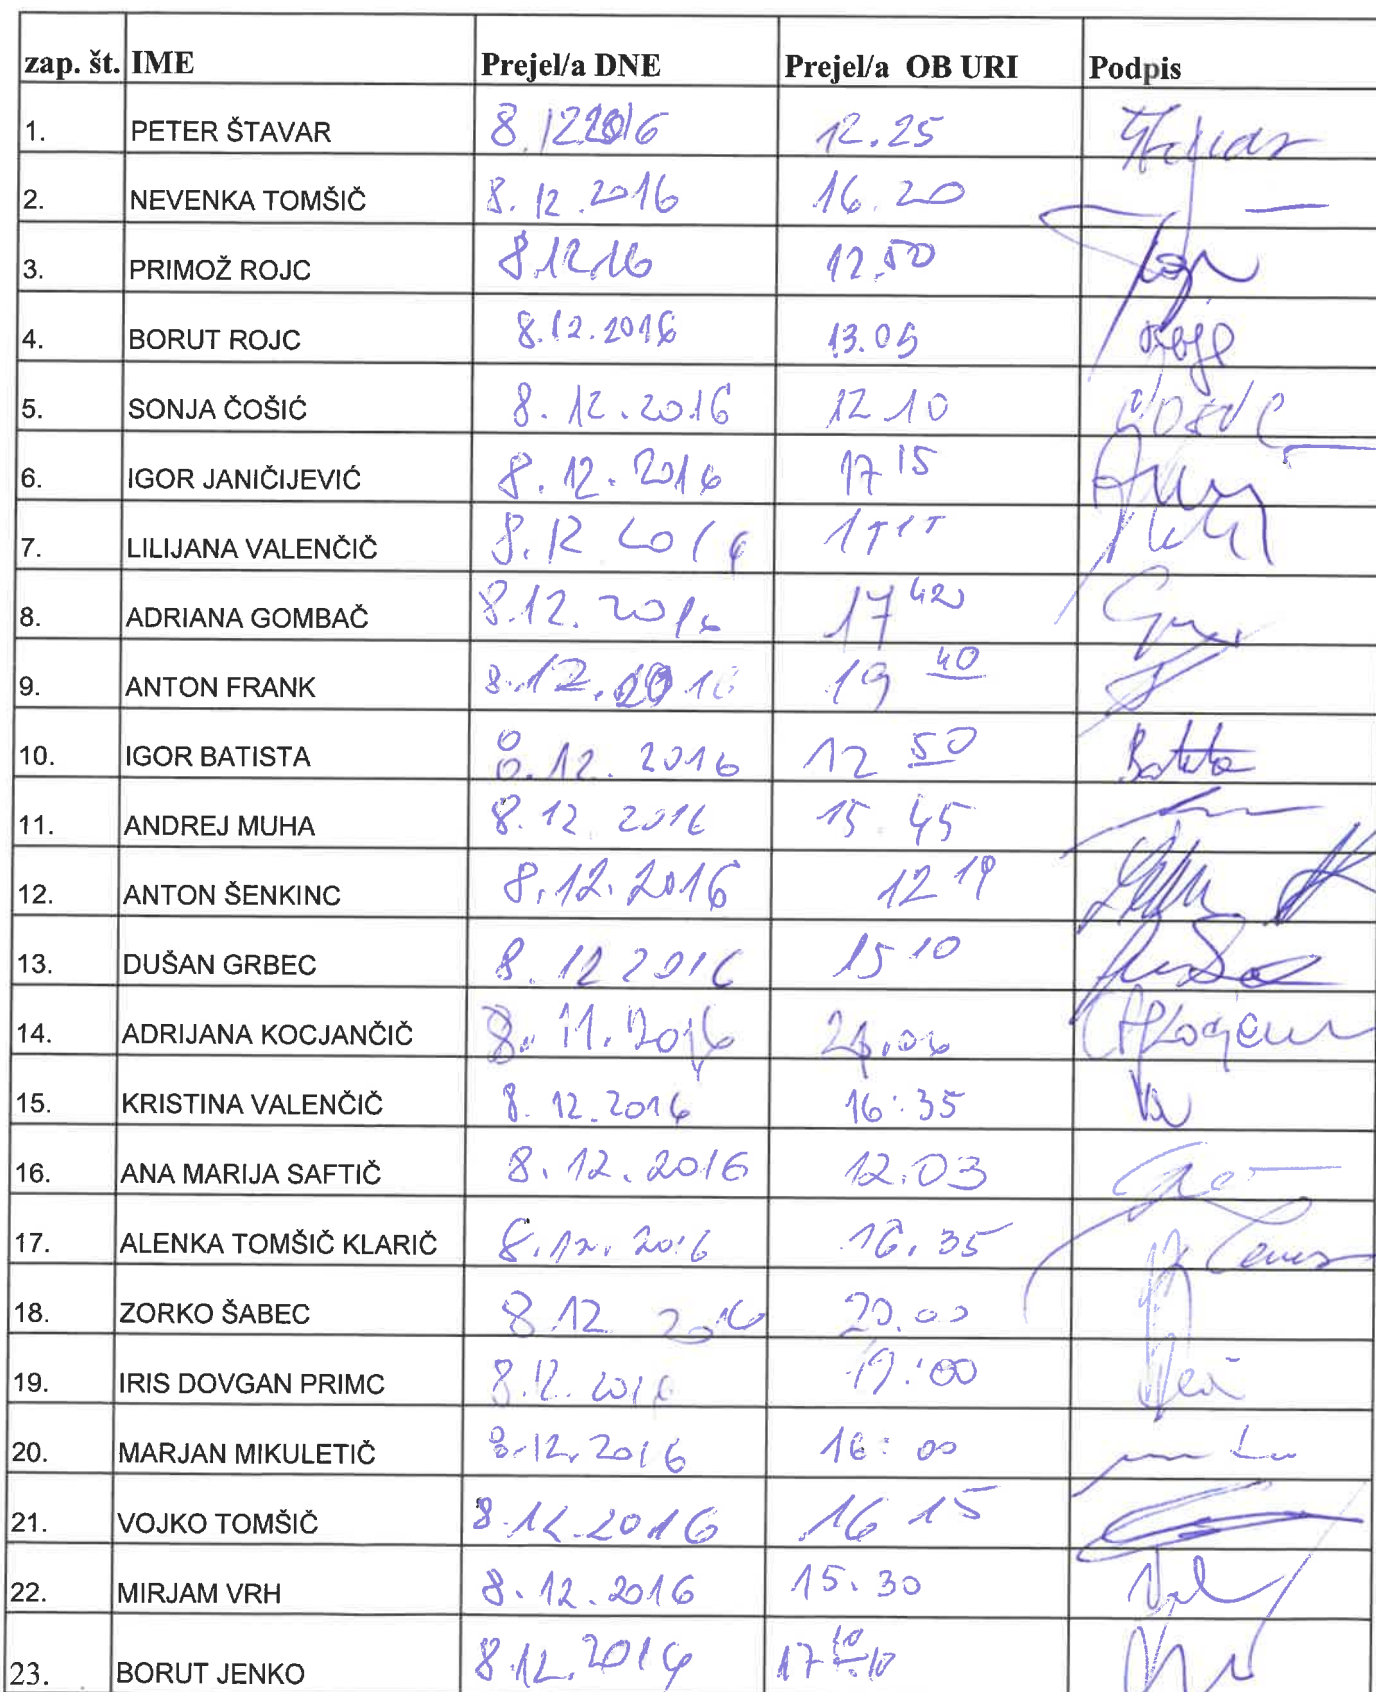 zap. št. IME Prejel/a DNE Prejel/a OB URI Podpis
1. PETER ŠTAVAR 8.12.2016 12.25
2. NEVENKA TOMŠIČ 8.12.2016 16.20
3. PRIMOŽ ROJC 8.12.16 12.50
4. BORUT ROJC 8.12.2016 13.05
5. SONJA ČOŠIĆ 8.12.2016 12.10
6. IGOR JANIČIJEVIĆ 8.12.2016 17 15
7. LILIJANA VALENČIČ 8.12 2016
8. ADRIANA GOMBAČ 8.12.2016 17 42
9. ANTON FRANK 8.12.2016 19 40
10. IGOR BATISTA 8.12.2016 12 50 Batista
11. ANDREJ MUHA 8.12 2016 15.45
12. ANTON ŠENKINC 8.12.2016 12 19
13. DUŠAN GRBEC 8.12 2016 15 10
14. ADRIJANA KOCJANČIČ 8.11.2016
15. KRISTINA VALENČIČ 8.12.2016 16:35
16. ANA MARIJA SAFTIČ 8.12.2016 12.03
17. ALENKA TOMŠIČ KLARIČ 8.12.2016 16.35
18. ZORKO ŠABEC 8.12 2016 20.00
19. IRIS DOVGAN PRIMC 8.12.2016 19:00
20. MARJAN MIKULETIČ 8.12.2016 16:00
21. VOJKO TOMŠIČ 8.12.2016 16 15
22. MIRJAM VRH 8.12.2016 15.30
23. BORUT JENKO 8.12.2016 17